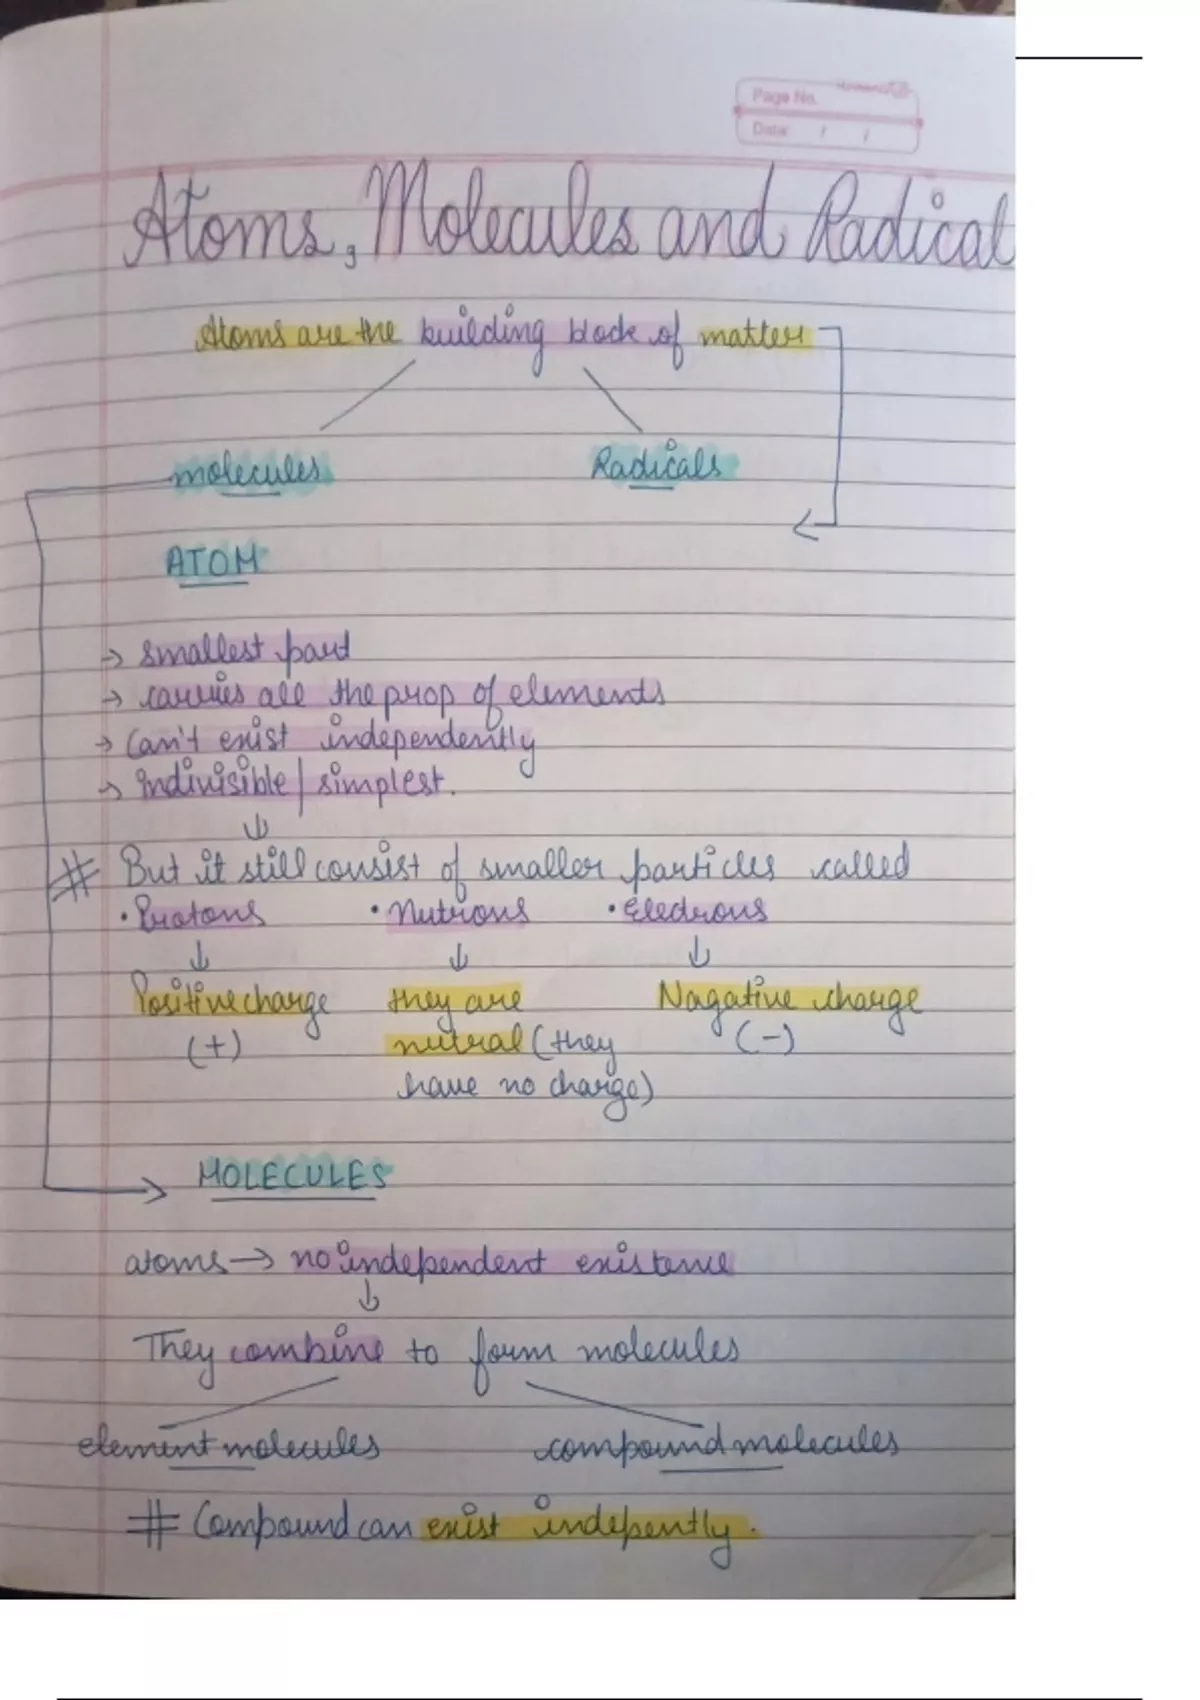 Page No.
Date / /
Atoms, Molecules and Radical
Atoms are the building block of matter
molecules Radicals
ATOM
→ smallest part
→ carries all the prop of elements
→ Can't exist independently
→ indivisible / simplest.
↓
# But it still consist of smaller particles called
• Protons • Nutrons • Electrons
↓ ↓ ↓
Positive charge they are Nagative charge
(+) nutral (they (-)
have no charge)
MOLECULES
atoms → no independent existence
↓
They combine to form molecules
element molecules compound molecules
# Compound can exist indepently.